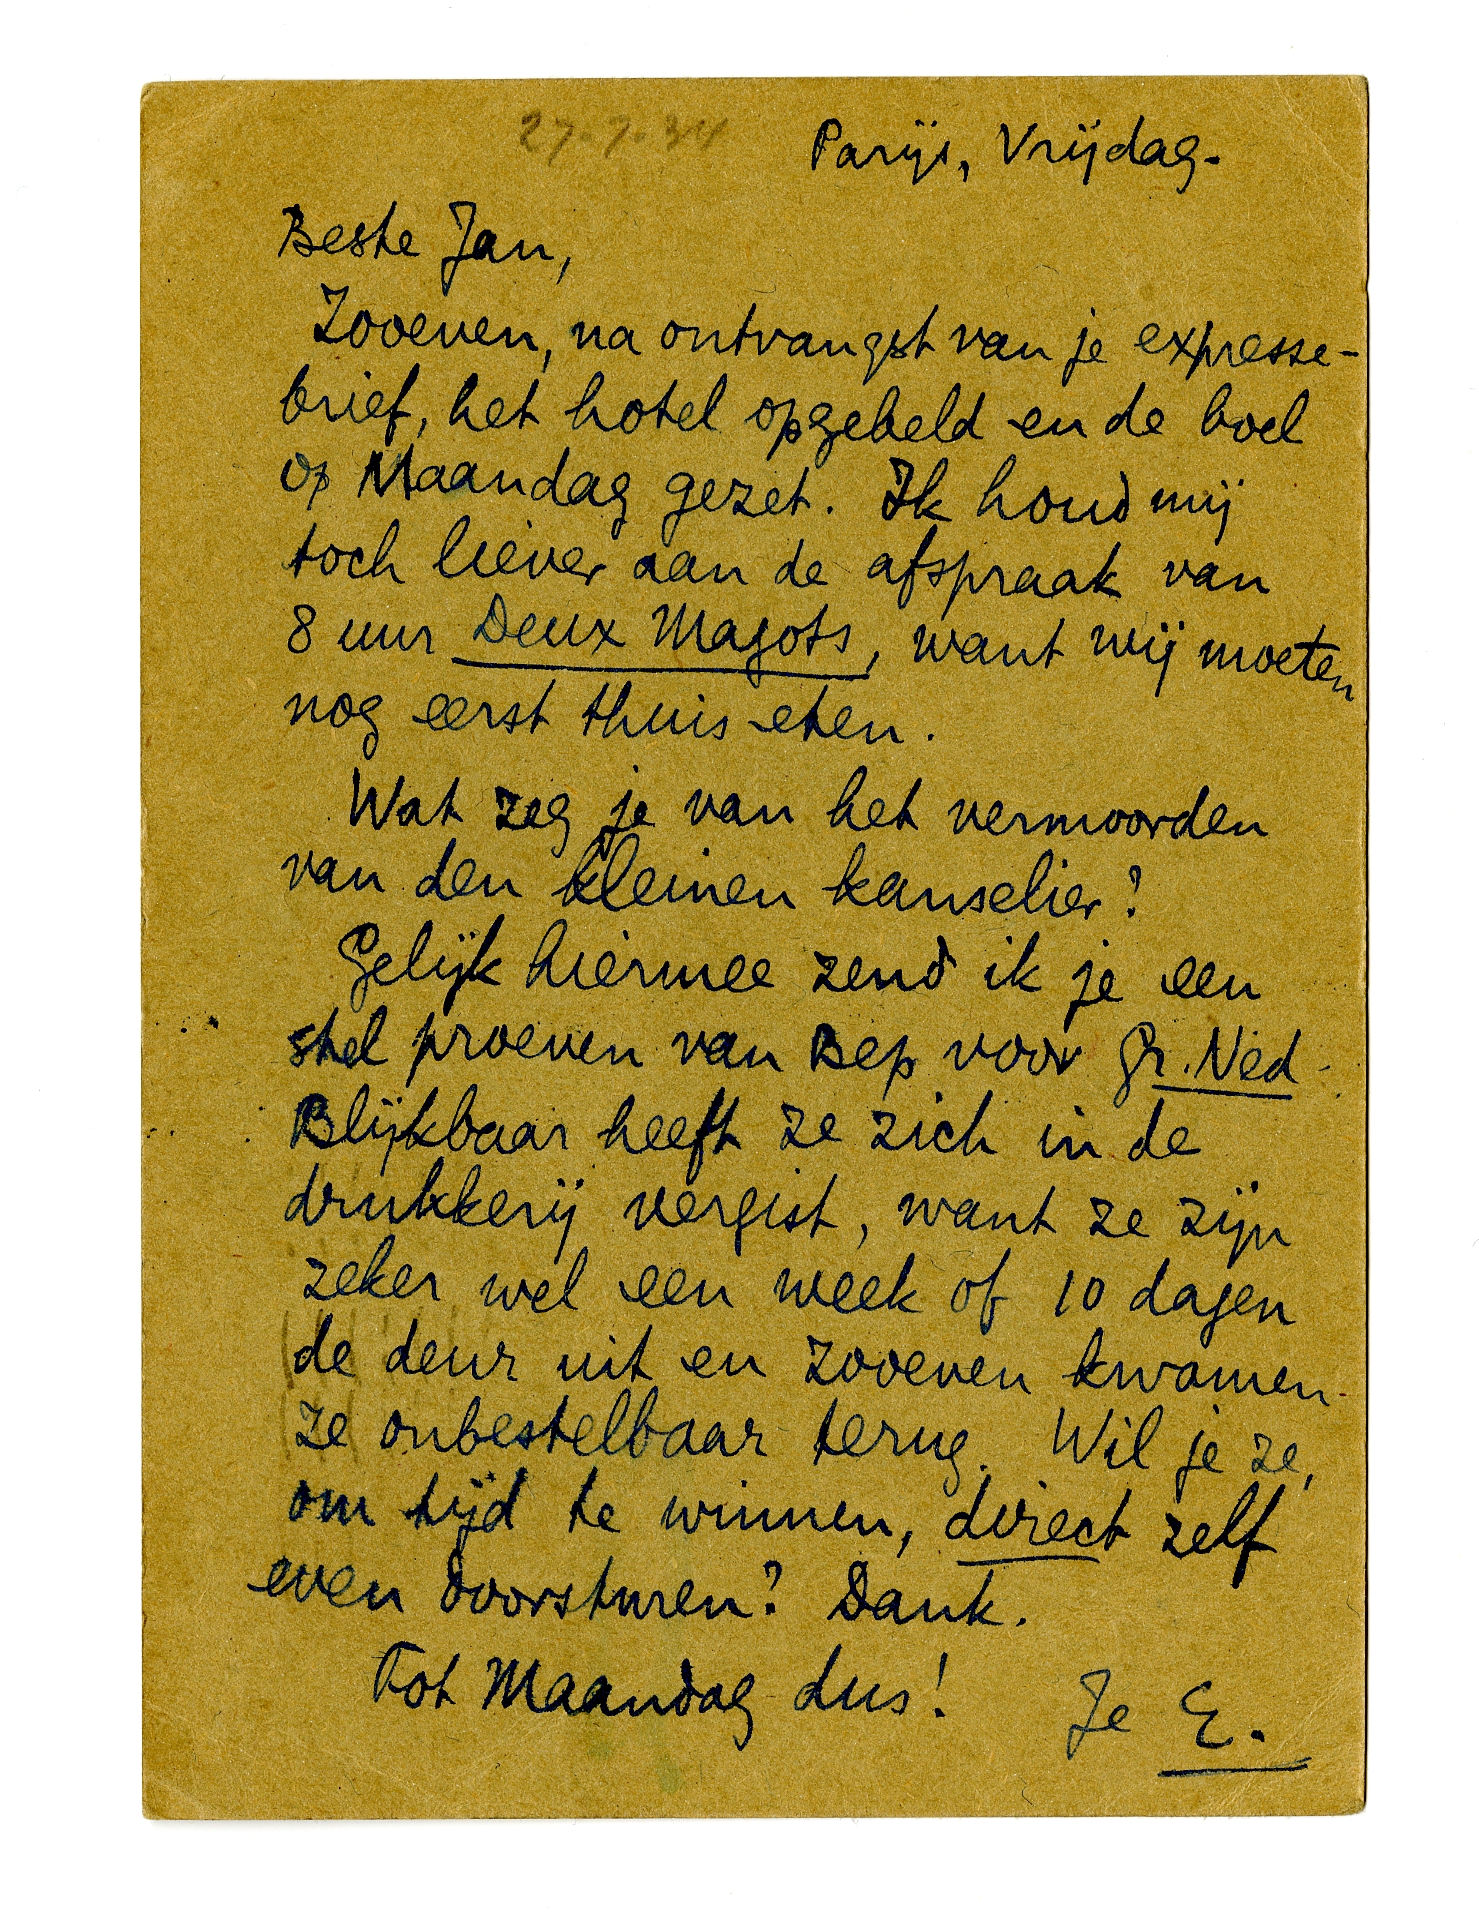 27-7-34
Parijs, Vrijdag.
Beste Jan,
Zooeven, na ontvangst van je expresse-
brief, het hotel opgebeld en de boel
op Maandag gezet. Ik houd mij
toch liever aan de afspraak van
8 uur Deux Magots, want wij moeten
nog eerst thuis eten.
Wat zeg je van het vermoorden
van den kleinen kanselier?
Gelijk hiermee zend ik je een
stel proeven van Bep voor Gr. Ned.
Blijkbaar heeft ze zich in de
drukkerij vergist, want ze zijn
zeker wel een week of 10 dagen
de deur uit en zooeven kwamen
ze onbestelbaar terug. Wil je ze,
om tijd te winnen, direct zelf
even doorsturen? Dank.
Tot Maandag dus!
Je E.